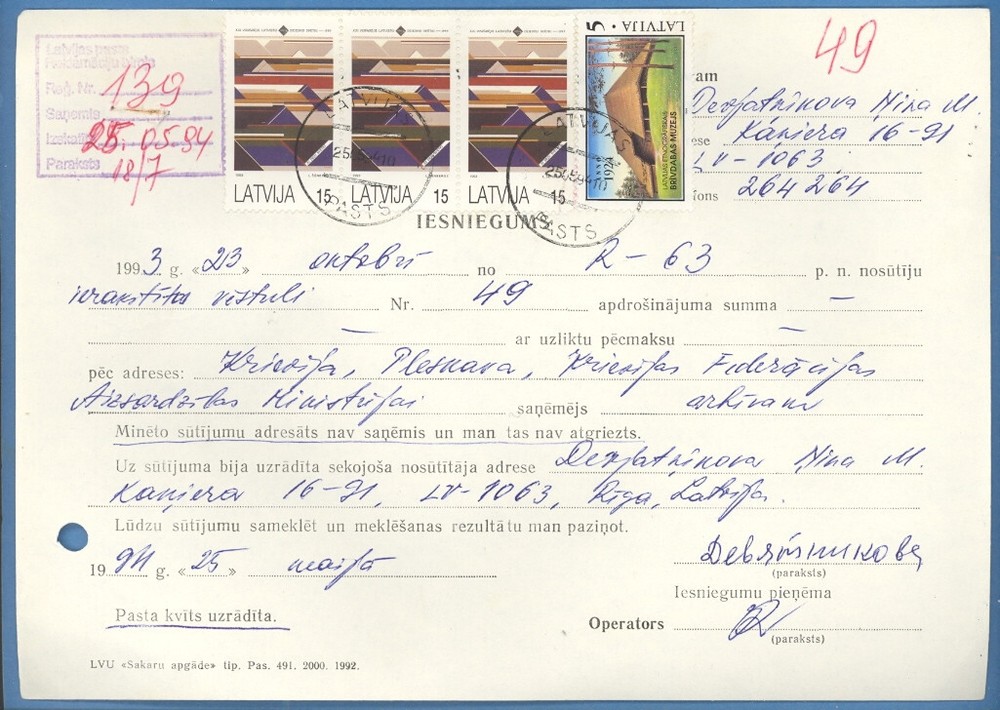 Latvijas pasta
Reģ. Nr. 139
Saņemts
25.05.94
Paraksts
18/7
LATVIJA 15
LATVIJA 15
LATVIJA 15
LATVIJA 5
LATVIJAS ETNOGRĀFISKAIS
BRĪVDABAS MUZEJS
1924
LATVIJAS
25.5.94 10
PASTS
LATVIJAS
25.5.94 10
PASTS
49
am
Devjatņikova Ņina M.
ese Kaņiera 16-91
LV-1063
fons 264 264
IESNIEGUMS
1993 g. «23» oktobrī no R-63 p. n. nosūtīju
ierakstīto vēstuli Nr. 49 apdrošinājuma summa —
— ar uzliktu pēcmaksu —
pēc adreses: Krievija, Pleskava, Krievijas Federācijas
Aizsardzības Ministrijai saņēmējs arhīvam
Minēto sūtījumu adresāts nav saņēmis un man tas nav atgriezts.
Uz sūtījuma bija uzrādīta sekojoša nosūtītāja adrese Devjatņikova Ņina M.
Kaņiera 16-91, LV-1063, Rīga, Latvija.
Lūdzu sūtījumu sameklēt un meklēšanas rezultātu man paziņot.
1994 g. «25» maijā
(paraksts)
Iesniegumu pieņēma
Pasta kvīts uzrādīta.
Operators
(paraksts)
LVU «Sakaru apgāde» tip. Pas. 491. 2000. 1992.